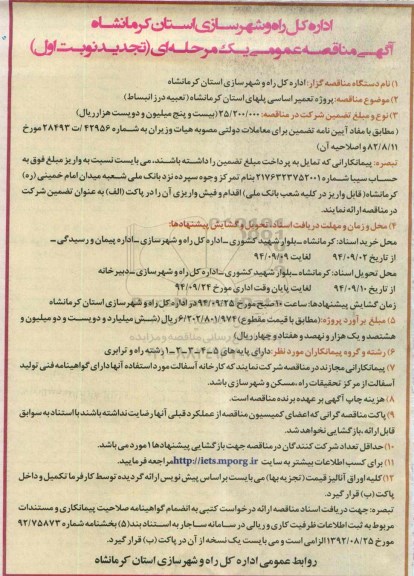 اداره کل راه و شهرسازی استان کرمانشاه
آگهی مناقصه عمومی یک مرحله‌ای (تجدید نوبت اول)
۱) نام دستگاه مناقصه گزار: اداره کل راه و شهرسازی استان کرمانشاه
۲) موضوع مناقصه: پروژه تعمیر اساسی پلهای استان کرمانشاه (تعبیه درز انبساط)
۳) نوع و مبلغ تضمین شرکت در مناقصه: ۲۵/۲۰۰/۰۰۰ (بیست و پنج میلیون و دویست هزار ریال)
(مطابق با مفاد آیین نامه تضمین برای معاملات دولتی مصوبه هیات وزیران به شماره ۴۲۹۵۶/ت ۲۸۴۹۳ مورخ
۸۲/۸/۱۱ و اصلاحیه آن)
تبصره: پیمانکارانی که تمایل به پرداخت مبلغ تضمین را داشته باشند، می بایست نسبت به واریز مبلغ فوق به
حساب سیبا شماره ۲۱۷۶۳۳۳۷۵۲۰۰۱ بنام تمرکز وجوه سپرده نزد بانک ملی شعبه میدان امام خمینی (ره)
کرمانشاه (قابل واریز در کلیه شعب بانک ملی) اقدام و فیش واریزی آن را در پاکت (الف) به عنوان تضمین شرکت
در مناقصه ارائه نمایند.
۴) محل و زمان و مهلت دریافت اسناد، تحویل و گشایش پیشنهادها:
محل خرید اسناد: کرمانشاه ـ بلوار شهید کشوری ـ اداره کل راه و شهرسازی ـ اداره پیمان و رسیدگی ـ
از تاریخ ۹۴/۰۹/۰۲ لغایت ۹۴/۰۹/۰۹
محل تحویل اسناد: کرمانشاه ـ بلوار شهید کشوری ـ اداره کل راه و شهرسازی ـ دبیرخانه
از تاریخ ۹۴/۰۹/۱۰ لغایت پایان وقت اداری مورخ ۹۴/۰۹/۲۴
زمان گشایش پیشنهادها: ساعت ۱۰ صبح مورخ ۹۴/۰۹/۲۵ در اداره کل راه و شهرسازی استان کرمانشاه
۵) مبلغ برآورد پروژه: (مطابق با قیمت مقطوع) ۶/۲۰۲/۸۰۱/۹۷۴ ریال (شش میلیارد و دویست و دو میلیون و
هشتصد و یک هزار و نهصد و هفتاد و چهار ریال)
۶) رشته و گروه پیمانکاران مورد نظر: دارای پایه های ۵-۴-۳-۲-۱ رشته راه و ترابری
۷) پیمانکارانی مجازند در مناقصه شرکت نمایند که کارخانه آسفالت مورد استفاده آنها دارای گواهینامه فنی تولید
آسفالت از مرکز تحقیقات راه، مسکن و شهرسازی باشد.
۸) هزینه چاپ آگهی بر عهده برنده مناقصه است.
۹) پاکت مناقصه گرانی که اعضای کمیسیون مناقصه از عملکرد قبلی آنها رضایت نداشته باشند با استناد به سوابق
قابل ارائه، بازگشایی نخواهد شد.
۱۰) حداقل تعداد شرکت کنندگان در مناقصه جهت بازگشایی پیشنهادها ۱ مورد می باشد.
۱۱) برای کسب اطلاعات بیشتر به سایت http://iets.mporg.ir مراجعه فرمایید.
۱۲) کلیه اوراق آنالیز قیمت (تجزیه بها) می بایست بر اساس پیش نویس ارائه گردیده توسط کارفرما تکمیل و داخل
پاکت (ب) قرار گیرد.
تبصره: جهت دریافت اسناد مناقصه ارائه درخواست کتبی به انضمام گواهینامه صلاحیت پیمانکاری و مستندات
مربوط به ثبت اطلاعات ظرفیت کاری و ریالی در سامانه ساجار به استناد بند (۵) بخشنامه شماره ۹۲/۷۵۸۷۳
مورخ ۱۳۹۲/۰۸/۲۵ الزامی است و می بایست یک نسخه از آن در پاکت (ب) قرار گیرد.
روابط عمومی اداره کل راه و شهرسازی استان کرمانشاه